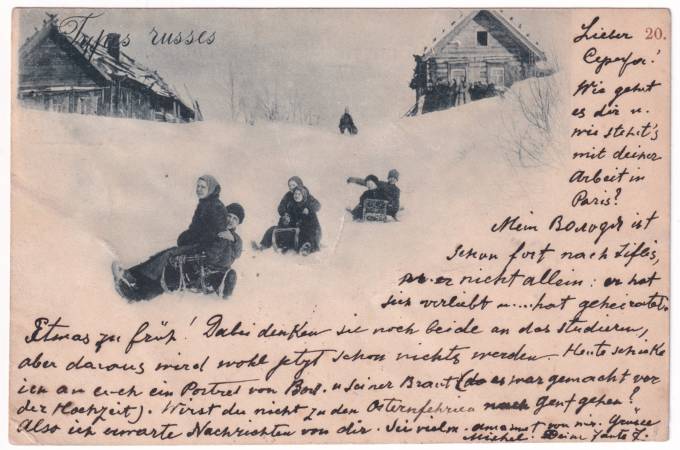 Types russes
20.
Lieber
Сережа!
Wie geht
es dir u.
wie steht's
mit deiner
Arbeit in
Paris?
Mein Володя ist
schon fort nach Tiflis,
er nicht allein: er hat
sich verliebt u... hat geheiratet.
Etwas zu früh! Dabei denken sie noch beide an das studieren,
aber daraus wird wohl jetzt schon nichts werden. Heute schicke
ich an euch ein Portret von u. seiner Braut (es war gemacht vor
der Hochzeit). Wirst du nicht zu den Osternfehrien nach gent gehen?
Also ich erwarte Nachrichten von dir. Sei vielm. umarmt von mir. Grüsse
Michel. Deine Tante